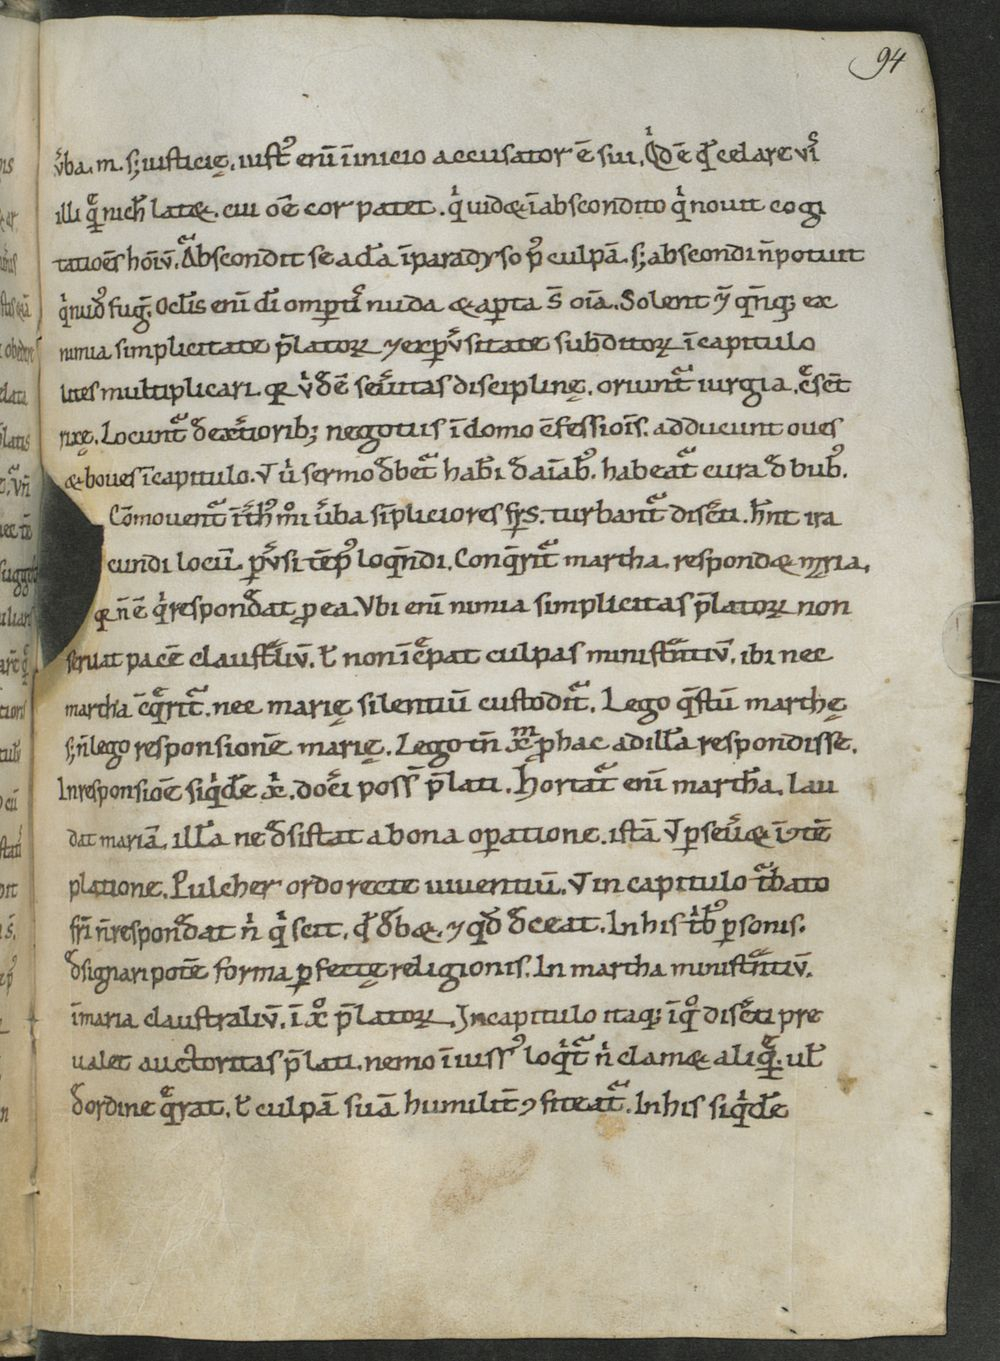 94
ṽba. m. s; iusticię. iust᷒ enī īinicio accusator ē sui. Qͥd ē qͩ celare vͥ
illi qͣ nich̄ lat&. cui oē̄ cor patet. qͥ uid& īabscondito. qͥ nouit cogi
tatioēs hoīv̄. Abscondit se adā īparadyso p᷒ culpā. s; abscondi n̄ potuit
qͥ nudꝰ fuḡ. Oclīs enī dī omp̄tī nuda & apta s̄ oīa. Solent ⁊̄ qn̄q; ex
nimia simplicitate p̄latoꝝ ⁊ exp̱v̄sitate subditoꝝ īcapitulo
lites multiplicari. qꝛ vͥ dē̄ seṽitas disciplinę. oriunt᷑ iurgia. c̄scēt
rixę. Locunt᷑ d̄extͥorib; negotiis ī domo ꝯfessioīs. adducunt oues
& boues īcapitulo. V vͥ sermo d̄bet᷑ hab̄i d̄aīabꝰ. habeat᷑ cura d̄ bubꝰ.
Cōmouent᷑ īt̄hͨ m̊i ṽba sīpliciores fr̄s. turbant᷑ discͤti. h̄nt ira
cundi locū. ꝑṽsi tēpꝰ loqn̄di. Conqͥrit᷑ martha. respond& mͣria.
qꝛ n̄ ē qͥ respond̄at ꝓ ea. Vbi enī nimia simplicitas p̄latoꝝ non
seruat pacē claustͣliv̄. ꝉ non īcͤpat culpas ministn̄tiv̄. ibi nec
martha ꝯqͥrit᷑. nec marię silentiū custodit᷑. Lego qͣstū marthę
s; n̄ lego responsionē marię. Lego tn̄ xp̄m ꝓ hac ad illā respondisse.
In responsiōe siqͥdē xͥ. docͤi poss̄ p̄lati. Hortat᷑ enī marthā. lau
dat mariā. illā ne d̄sistat a bona op̱atione. istā V ꝑseṽ& īꝯtē
platione. Pulcher ordo recte uiuentiū. V in capitulo t̄bato
fr̄i n̄ respond̄at n̄ͥ qͥ scit. qͩ d̄b&. ⁊ qd̄ d̄ceat. In his tͥbꝰ ꝑsonis.
d̄signari potē forma ꝑfectę religionis. In martha ministn̄tiv̄.
īmaria claustraliv̄. ī x̊ p̄latoꝝ. In capitulo itaq; ī q̊ discͤti pre
ualet auctoritas p̄lati. nemo īiussꝰ loqͥt᷑ nͥ clam& aliqͣ. ul̄
d̄ordine qͤrat. ꝉ culpā suā humilit̄ ꝯfiteat᷑. In his siqͥdē